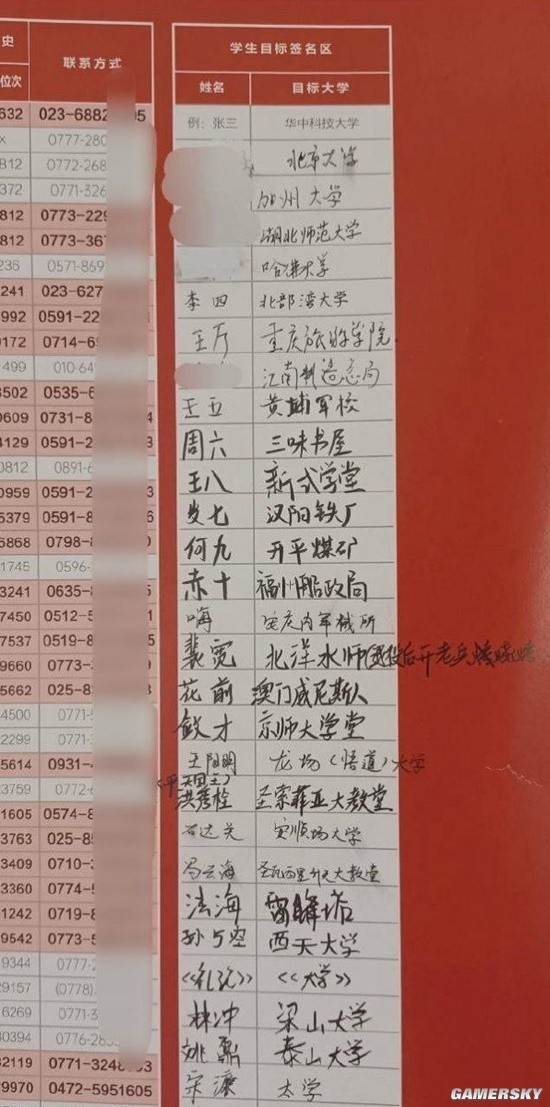 史
位次
联系方式
学生目标签名区
姓名 目标大学
632 023-6882 05
例：张三 华中科技大学
x 0777-280
北京大学
812 0772-268
372 0771-326
加州大学
812 0773-229
湖北师范大学
812 0773-367
236 0571-869
哈佛大学
241 023-627
李四 北部湾大学
992 0591-22
0172 0714-6
王方 重庆旅游学院
1499 010-64
江南制造总局
3502 0535-6
王五 黄埔军校
0609 0731-8 4
4129 0591-2 3
周六 三味书屋
0812 0891-6
王八 新式学堂
0959 0591-2
5379 0591-8 6
发七 汉阳铁厂
6868 0798-8
何九 开平煤矿
1745 0596-
3241 0635-8 5
赤十 福州船政局
7450 0512-5
嗨 安庆内军械所
7537 0519-8
裴宽 北洋水师(退役后开老兵烧烧烤
9660 0773-3
5662 025-8
花前 澳门威尼斯人
4500 0771-5
敛才 京师大学堂
2299 0771-
5614 0931-4
王阳明 龙场(悟道)大学
3759 0772-6
(平天国王)
洪秀栓 圣索菲亚大教堂
1605 0574-8
石达关 安顺场大学
3763 025-8
3409 0710-3
冯云海 圣瓦西里升天大教堂
3360 0774-5
1242 0719-8
法海 雷峰塔
9542 0773-5
孙悟空 西天大学
9344 0777-2
《礼记》 《大学》
29157 (0778)
6269 0771-3
林冲 梁山大学
30394 0776-28
姚鼐 泰山大学
32119 0771-3248 3
宋濂 太学
29970 0472-5951605
GAMERSKY